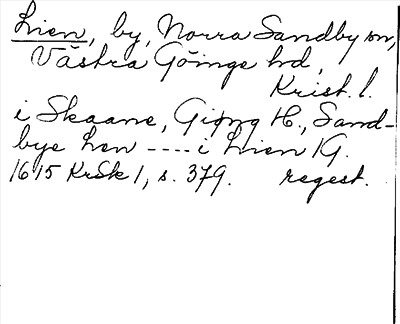 Lien, by, Norra Sandby sn,
Västra Göinge hd,
Krist. l.
i Skaane, Giøng H., Sand-
bye Len ---- i Lien 1G.
1615 KrSk 1, s. 379. regest.